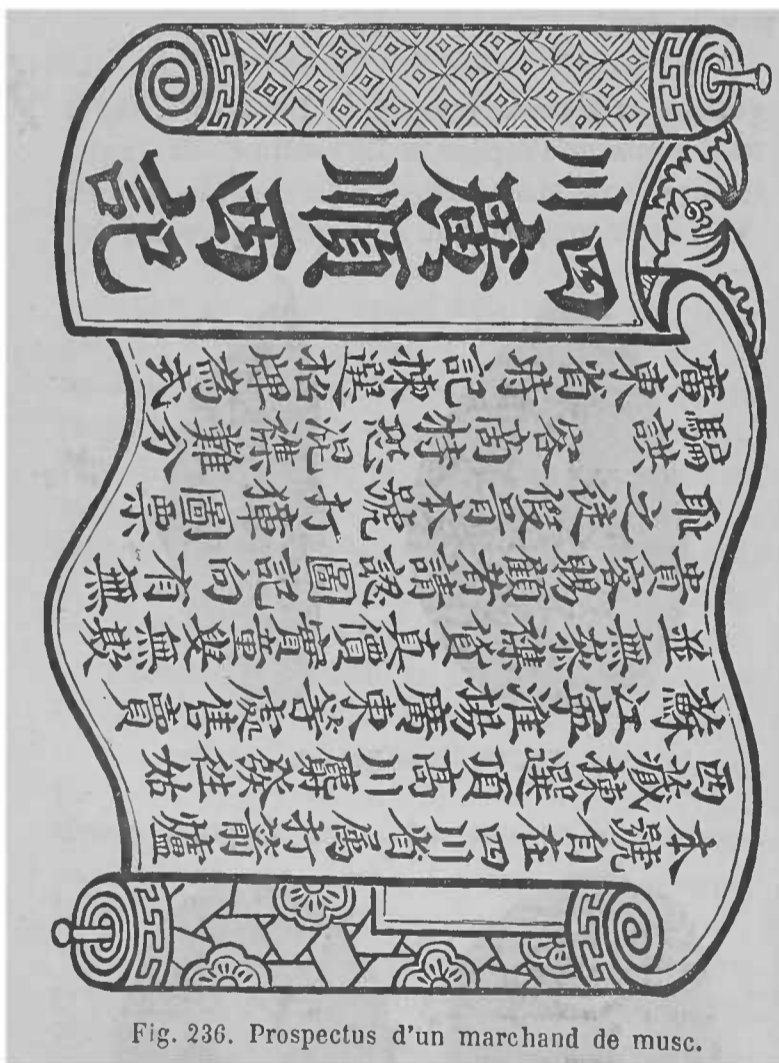 四川
廣順西記
本號自在四川省屬打箭爐
西藏揀選頂高川麝發往姑
蘇江寧淮揚廣東等處售賣
並無叅襍貨真價實童叟無欺
貴客賜顧者請認圖記向有無
耻之徒假冒本號打圖票
騙誆客商特恐混襍難分
廣東省特記揀選招牌為式
Fig. 236. Prospectus d'un marchand de musc.